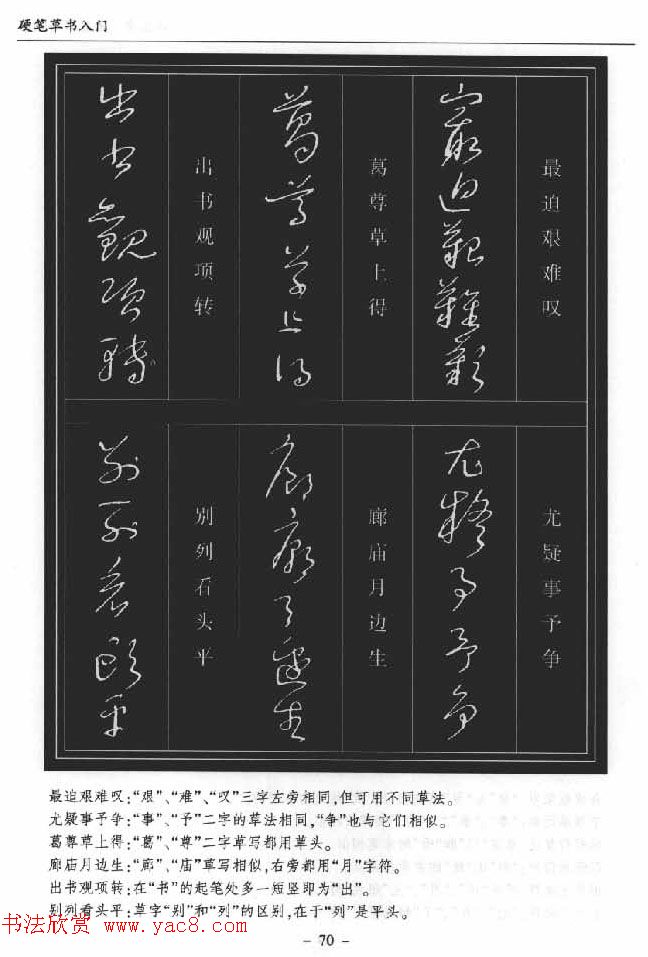 硬笔草书入门
最迫艰难叹
最迫艰难叹
尤疑事予争
尤疑事予争
葛尊草上得
葛尊草上得
廊庙月边生
廊庙月边生
出书观项转
出书观项转
别列看头平
别列看头平
最迫艰难叹:“艰”、“难”、“叹”三字左旁相同,但可用不同草法。
尤疑事予争:“事”、“予”二字的草法相同,“争”也与它们相似。
葛尊草上得:“葛”、“尊”二字草写都用草头。
廊庙月边生:“廊”、“庙”草写相似,右旁都用“月”字符。
出书观项转:在“书”的起笔处多一短竖即为“出”。
别列看头平:草字“别”和“列”的区别,在于“列”是平头。
书法欣赏 www.yac8.com
- 70 -